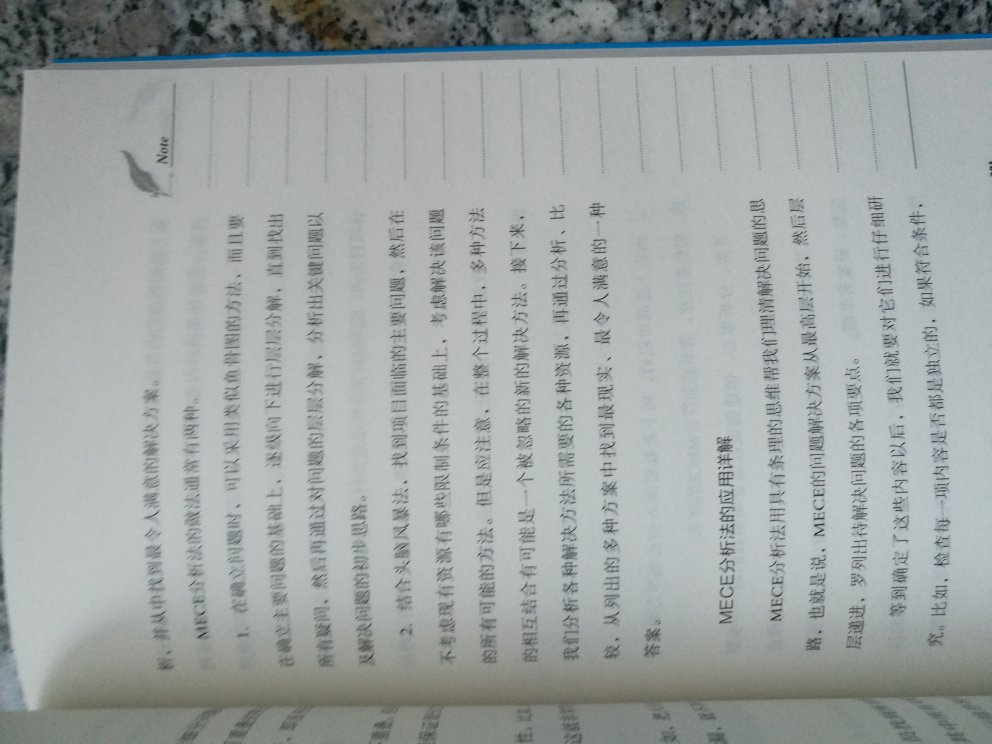 Note
析，并从中找到最令人满意的解决方案。
MECE分析法的做法通常有两种。
1. 在确立问题时，可以采用类似鱼骨图的方法，而且要
在确立主要问题的基础上，逐级向下进行层层分解，直到找出
所有疑问，然后再通过对问题的层层分解，分析出关键问题以
及解决问题的初步思路。
2. 结合头脑风暴法，找到项目面临的主要问题，然后在
不考虑现有资源有哪些限制条件的基础上，考虑解决该问题
的所有可能的方法。但是应注意，在整个过程中，多种方法
的相互结合有可能是一个被忽略的新的解决方法。接下来，
我们分析各种解决方法所需要的各种资源，再通过分析、比
较，从列出的多种方案中找到最现实、最令人满意的一种
答案。
MECE分析法的应用详解
MECE分析法用具有条理的思维帮我们理清解决问题的思
路，也就是说，MECE的问题解决方案从最高层开始，然后层
层递进，罗列出待解决问题的各项要点。
等到确定了这些内容以后，我们就要对它们进行仔细研
究。比如，检查每一项内容是否都是独立的，如果符合条件，